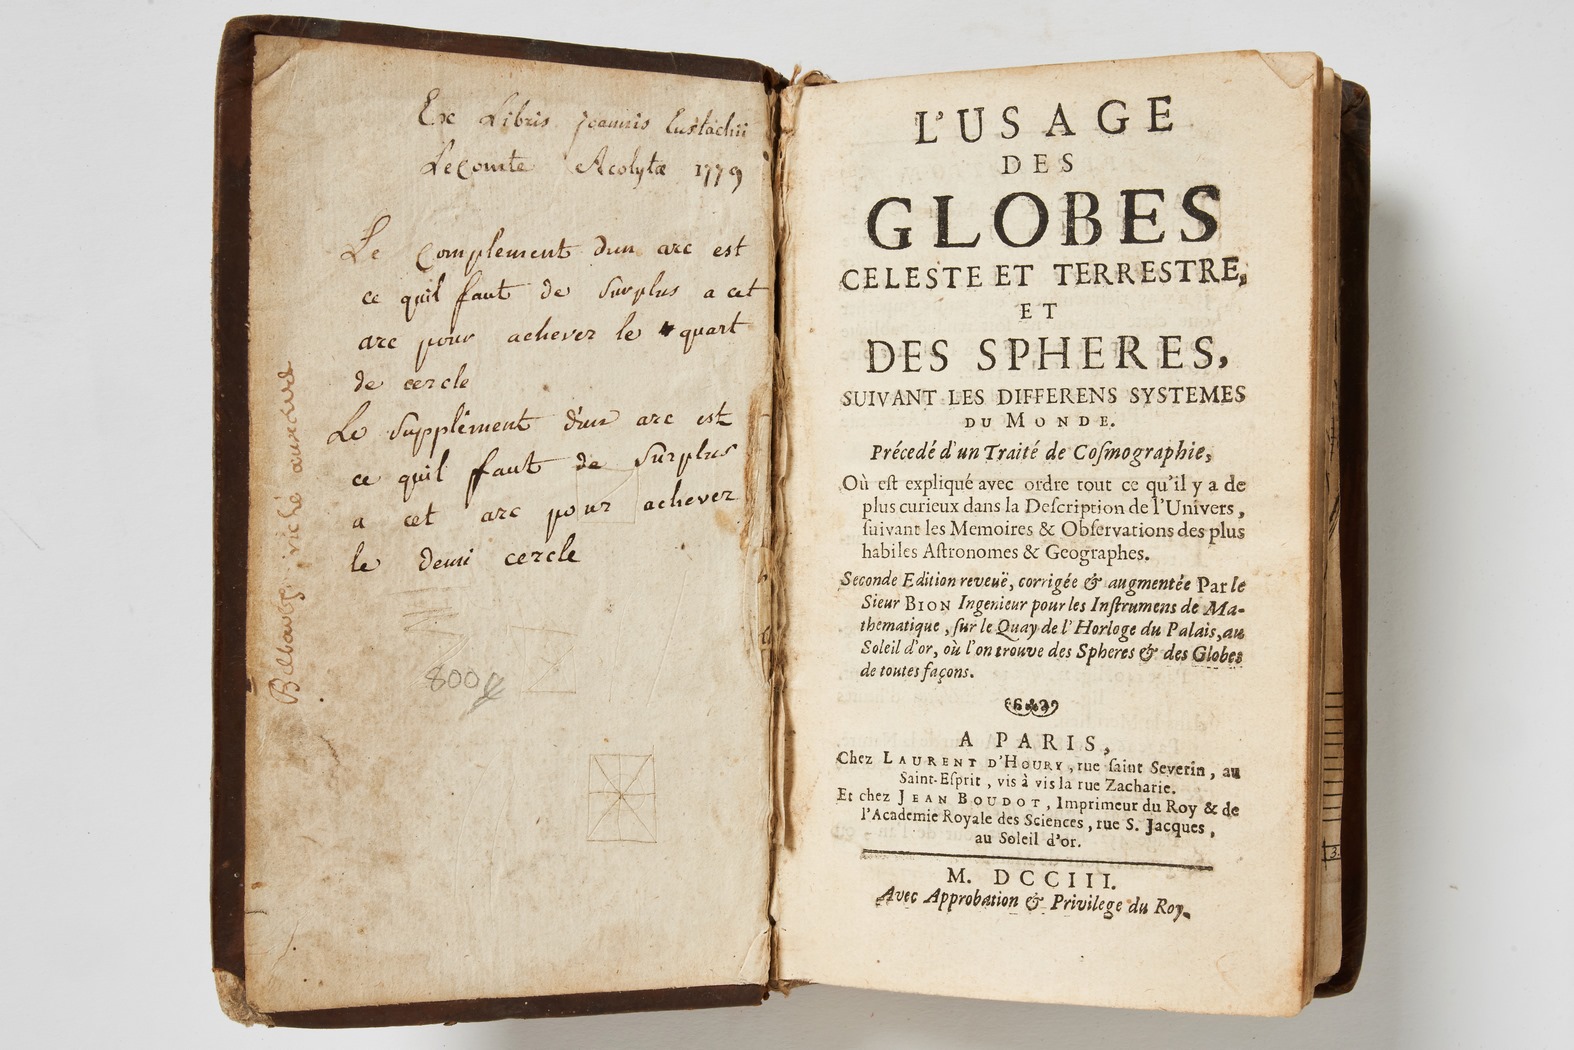 Ex Libris joannis Eustachii
LeComte Acolytæ 1779
Le Complement dun arc est
ce quil faut de Surplus a cet
arc pour achever le quart
de cercle
Le Supplément d'un arc est
ce quil faut de Surplus
a cet arc pour achever
le demi cercle
800
L'USAGE
DES
GLOBES
CELESTE ET TERRESTRE,
ET
DES SPHERES,
SUIVANT LES DIFFERENS SYSTEMES
DU MONDE.
Précedé d'un Traité de Coſmographie,
Où eſt expliqué avec ordre tout ce qu'il y a de
plus curieux dans la Deſcription de l'Univers,
ſuivant les Memoires & Obſervations des plus
habiles Aſtronomes & Geographes.
Seconde Edition reveuë, corrigée & augmentée Par le
Sieur BION Ingenieur pour les Inſtrumens de Ma-
thematique, ſur le Quay de l'Horloge du Palais, au
Soleil d'or, où l'on trouve des Spheres & des Globes
de toutes façons.
A PARIS,
Chez LAURENT D'HOURY, rue ſaint Severin, au
Saint-Eſprit, vis à vis la rue Zacharie.
Et chez JEAN BOUDOT, Imprimeur du Roy & de
l'Academie Royale des Sciences, rue S. Jacques,
au Soleil d'or.
M. DCCIII.
Avec Approbation & Privilege du Roy.
3.